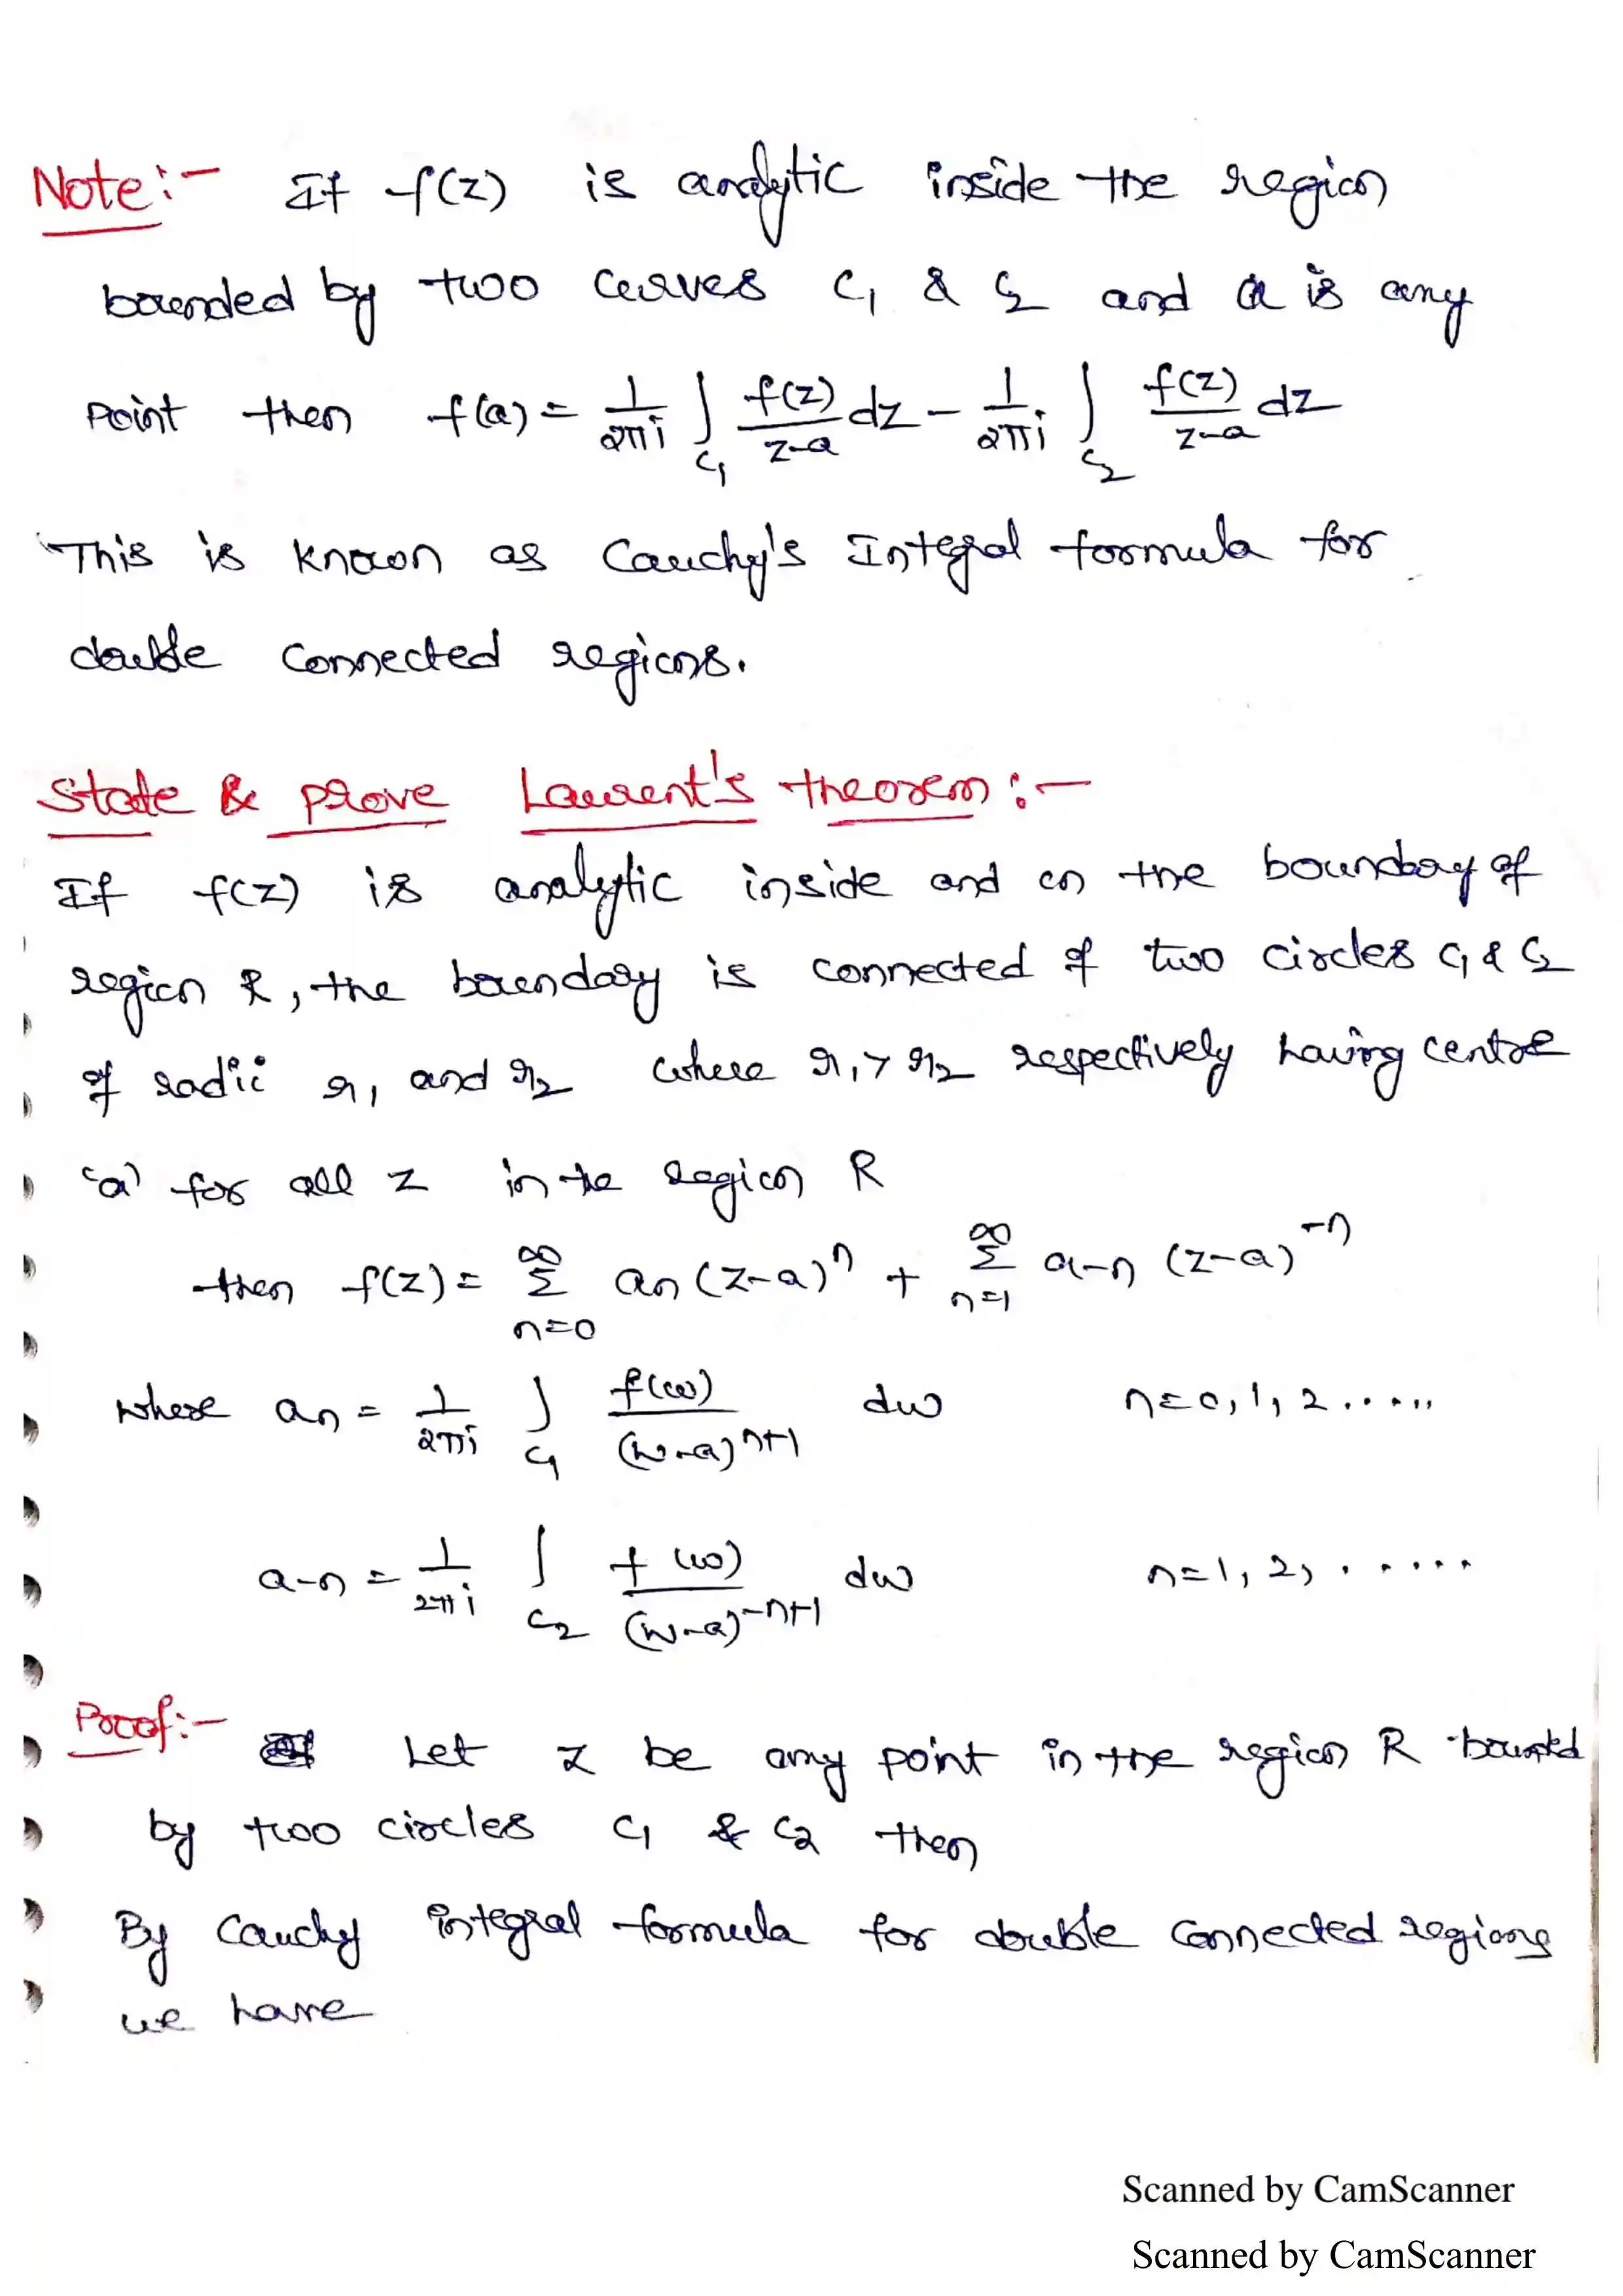 Note:- If f(z) is analytic inside the region
bounded by two curves C1 & C2 and a is any
point then f(a) = 1/2πi ∫C1 f(z)/z-a dz - 1/2πi ∫C2 f(z)/z-a dz
This is known as Cauchy's Integral formula for
double connected regions.
State & prove Laurent's theorem:-
If f(z) is analytic inside and on the boundary of
region R, the boundary is connected of two circles C1 & C2
of radii r1 and r2 where r1 > r2 respectively having centre
'a' for all z in the region R
then f(z) = ∞Σn=0 an (z-a)^n + ∞Σn=1 a-n (z-a)^-n
where an = 1/2πi ∫C1 f(w)/(w-a)^n+1 dw n=0,1,2.....
a-n = 1/2πi ∫C2 f(w)/(w-a)^-n+1 dw n=1,2,......
Proof:- Let z be any point in the region R bounded
by two circles C1 & C2 then
By Cauchy integral formula for double connected regions
we have
Scanned by CamScanner
Scanned by CamScanner